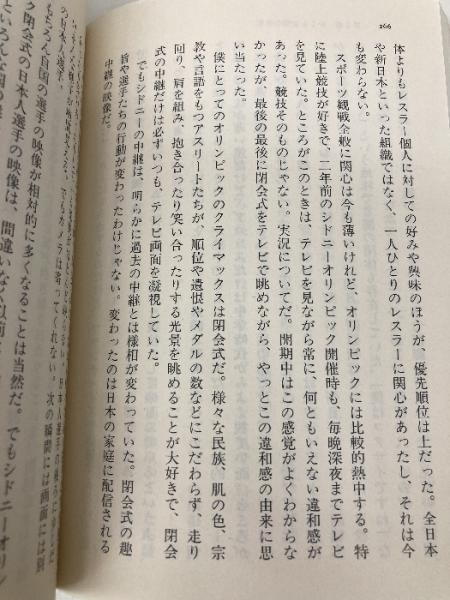 266
体よりもレスラー個人に対しての好みや興味のほうが、優先順位は上だった。全日本
や新日本といった組織ではなく、一人ひとりのレスラーに関心があったし、それは今
も変わらない。
スポーツ観戦全般に関心は今も薄いけれど、オリンピックには比較的熱中する。特
に陸上競技が好きで、二年前のシドニーオリンピック開催時も、毎晩深夜までテレビ
を見ていた。ところがこのときは、テレビを見ながら常に、何ともいえない違和感が
あった。競技そのものじゃない。実況についてだ。開期中はこの感覚がよくわからな
かったが、最後の最後に閉会式をテレビで眺めながら、やっとこの違和感の由来に思
い当たった。
僕にとってのオリンピックのクライマックスは閉会式だ。様々な民族、肌の色、宗
教や言語をもつアスリートたちが、順位や遺恨やメダルの数などにこだわらず、走り
回り、肩を組み、抱き合ったり笑い合ったりする光景を眺めることが大好きで、閉会
式の中継だけは必ずいつも、テレビ画面を凝視していた。
でもシドニーの中継は、明らかに過去の中継とは様相が変わっていた。閉会式の趣
旨や選手たちの行動が変わったわけじゃない。変わったのは日本の家庭に配信される
中継の映像だ。
日本人選手。
もちろん自国の選手の映像が相対的に多くなることは当然だ。でもシドニーオリン
ク閉会式の日本人選手の映像は、間違いなく以前